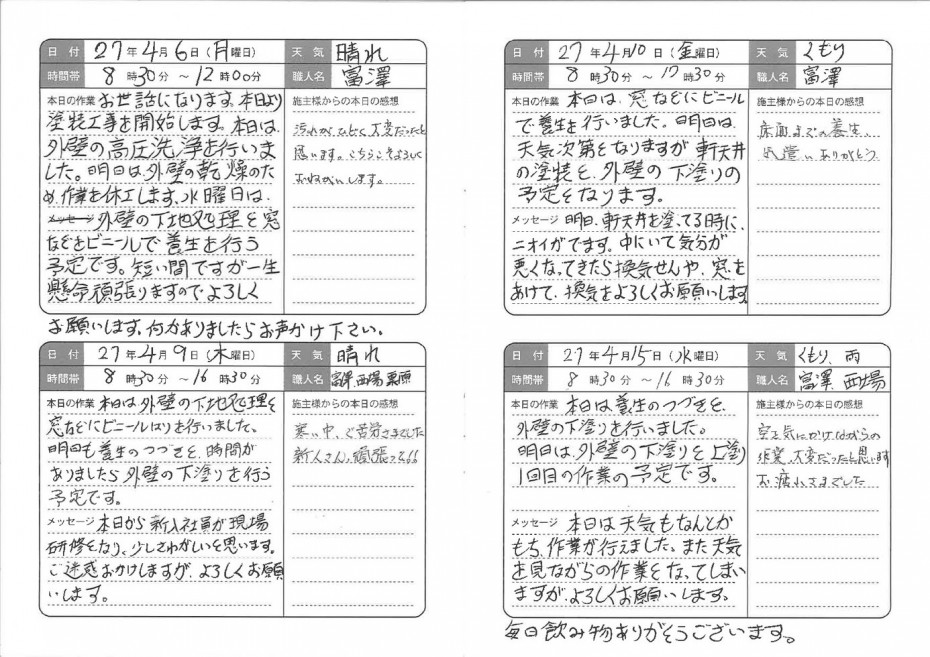 日付 27年4月6日(月曜日) 天気 晴れ
時間帯 8時30分 ~12時00分 職人名 富澤
本日の作業 お世話になります。本日より
塗装工事を開始します。本日は、
外壁の高圧洗浄を行いま
した。明日は、外壁の乾燥のた
め、作業を休工します。水曜日は、
メッセージ 外壁の下地処理を窓
などをビニールで養生を行う
予定です。短い間ですが一生
懸命頑張りますのでよろしく
お願いします。何かありましたらお声かけ下さい。
施主様からの本日の感想
汚れがひどく大変だったと
思います。こちらこそよろしく
おねがいします。
日付 27年4月9日(木曜日) 天気 晴れ
時間帯 8時30分 ~16時30分 職人名 富澤 西場 栗原
本日の作業 本日は外壁の下地処理を
窓などにビニールはりを行いました。
明日も養生のつづきを、時間が
ありましたら外壁の下塗りを行う
予定です。
メッセージ 本日から新入社員が現場
研修となり、少しさわがしいと思います。
ご迷惑おかけしますが、よろしくお願
いします。
施主様からの本日の感想
寒い中、ご苦労さまでした
新人さん、頑張って!!
日付 27年4月10日(金曜日) 天気 くもり
時間帯 8時30分 ~17時30分 職人名 富澤
本日の作業 本日は、窓などにビニール
で養生を行いました。明日は、
天気次第となりますが軒天井
の塗装と、外壁の下塗りの
予定となります。
メッセージ 明日、軒天井を塗ってる時に、
ニオイがでます。中にいて気分が
悪くなってきたら換気せんや、窓を
あけて、換気をよろしくお願いします
施主様からの本日の感想
床面までの養生、
お気遣いありがとう
日付 27年4月15日(水曜日) 天気 くもり、雨
時間帯 8時30分 ~16時30分 職人名 富澤 西場
本日の作業 本日は養生のつづきと、
外壁の下塗りを行いました。
明日は、外壁の下塗りと上塗り
1回目の作業の予定です。
メッセージ 本日は天気もなんとか
もち、作業が行えました。また天気
を見ながらの作業となってしまい
ますが、よろしくお願いします。
毎日飲み物ありがとうございます。
施主様からの本日の感想
空を気にかけながらの
作業、大変だったと思います
お疲れさまでした